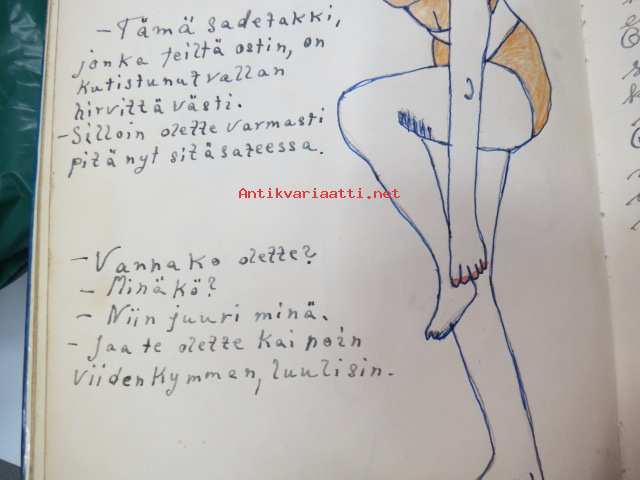 - Tämä sadetakki,
jonka teiltä ostin, on
kutistunut vallan
hirvittävästi.
- Silloin olette varmasti
pitänyt sitä sateessa.
Antikvariaatti.net
- Vanhako olette?
- Minäkö?
- Niin juuri minä.
- Jaa te olette kai noin
viidenkymmen, luulisin.